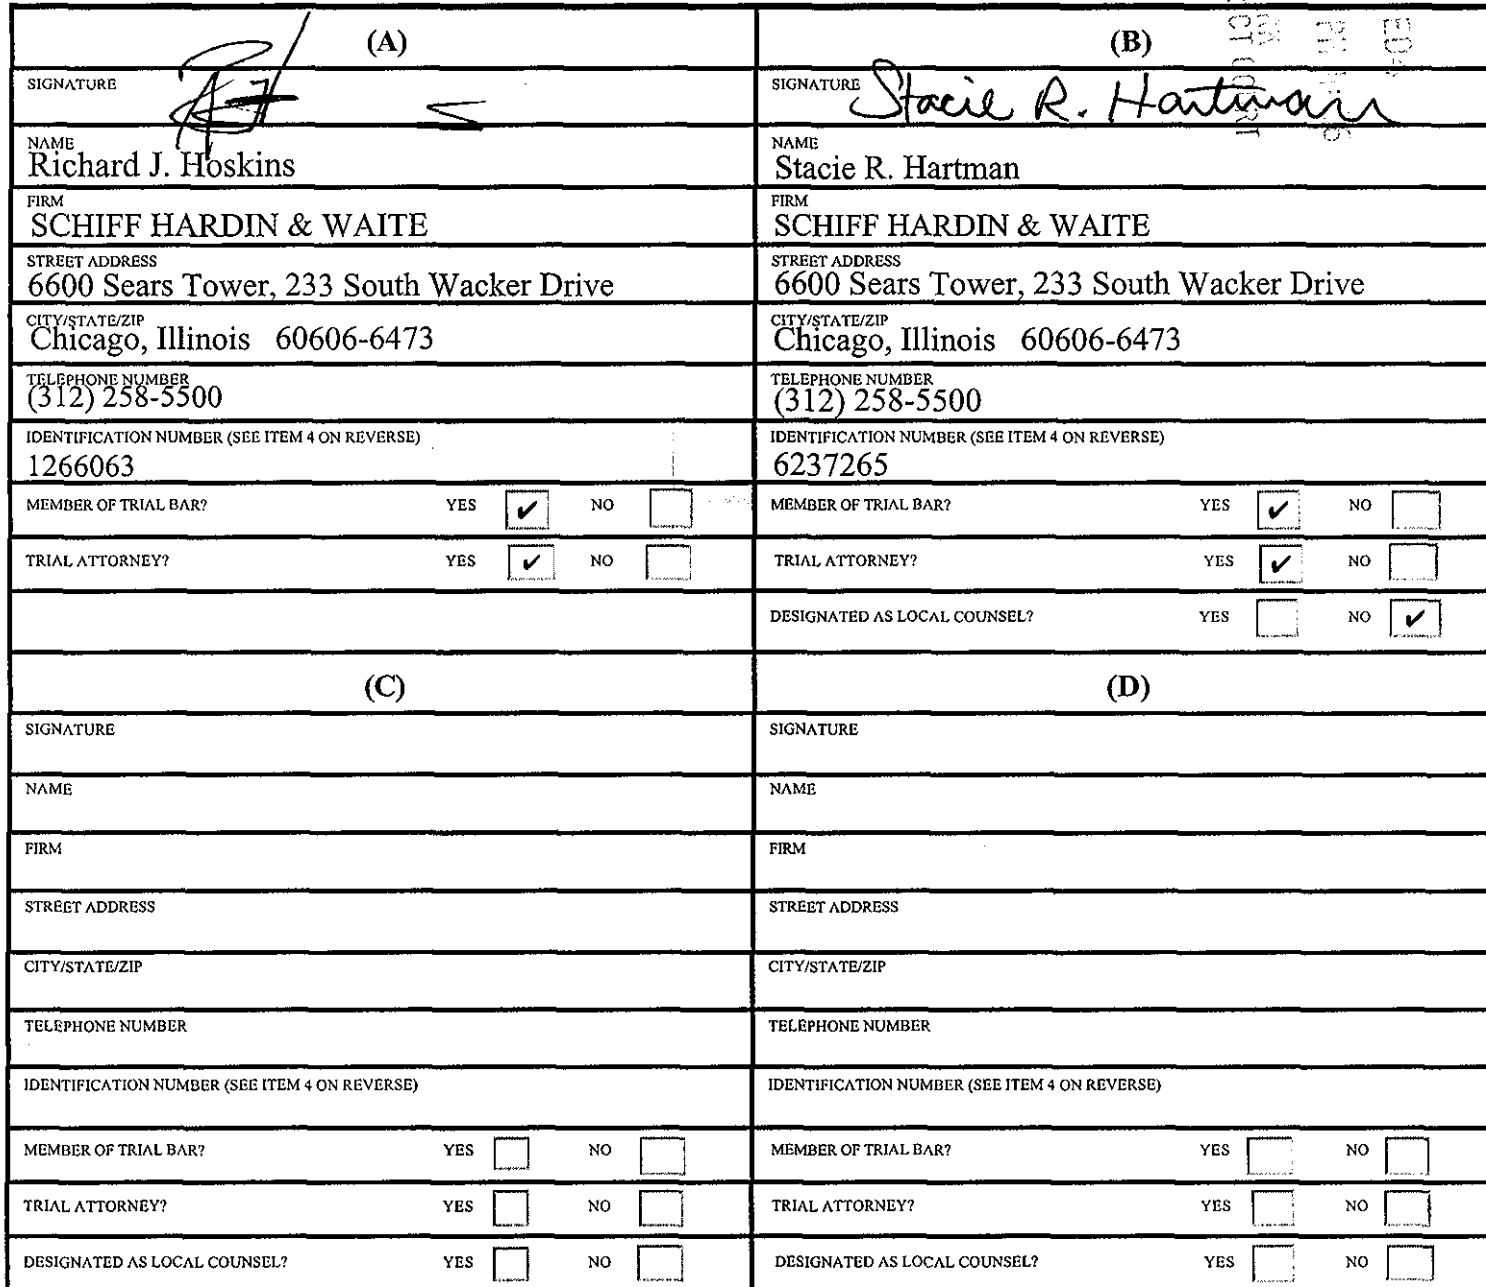 (A)
SIGNATURE
NAME
Richard J. Hoskins
FIRM
SCHIFF HARDIN & WAITE
STREET ADDRESS
6600 Sears Tower, 233 South Wacker Drive
CITY/STATE/ZIP
Chicago, Illinois 60606-6473
TELEPHONE NUMBER
(312) 258-5500
IDENTIFICATION NUMBER (SEE ITEM 4 ON REVERSE)
1266063
MEMBER OF TRIAL BAR? YES ✔ NO
TRIAL ATTORNEY? YES ✔ NO
(B)
SIGNATURE Stacie R. Hartman
NAME
Stacie R. Hartman
FIRM
SCHIFF HARDIN & WAITE
STREET ADDRESS
6600 Sears Tower, 233 South Wacker Drive
CITY/STATE/ZIP
Chicago, Illinois 60606-6473
TELEPHONE NUMBER
(312) 258-5500
IDENTIFICATION NUMBER (SEE ITEM 4 ON REVERSE)
6237265
MEMBER OF TRIAL BAR? YES ✔ NO
TRIAL ATTORNEY? YES ✔ NO
DESIGNATED AS LOCAL COUNSEL? YES NO ✔
(C)
SIGNATURE
NAME
FIRM
STREET ADDRESS
CITY/STATE/ZIP
TELEPHONE NUMBER
IDENTIFICATION NUMBER (SEE ITEM 4 ON REVERSE)
MEMBER OF TRIAL BAR? YES NO
TRIAL ATTORNEY? YES NO
DESIGNATED AS LOCAL COUNSEL? YES NO
(D)
SIGNATURE
NAME
FIRM
STREET ADDRESS
CITY/STATE/ZIP
TELEPHONE NUMBER
IDENTIFICATION NUMBER (SEE ITEM 4 ON REVERSE)
MEMBER OF TRIAL BAR? YES NO
TRIAL ATTORNEY? YES NO
DESIGNATED AS LOCAL COUNSEL? YES NO